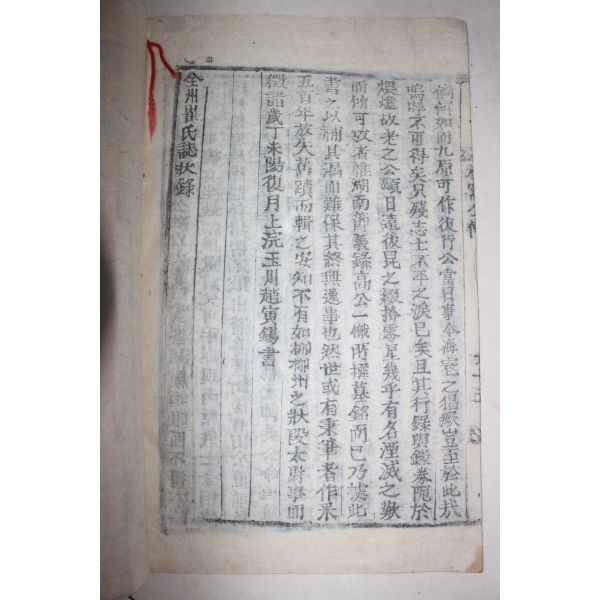 何如而九原可作復行公當日事令海寇之猖獗豈至於此哉
嗚呼不可得矣只殘志士不平之淚已矣且其行錄與鐵券阨於
燬燼故老之公頌日遠後昆之綴拾零星幾乎有名湮滅之歎
而猶可攷者惟湖南節義錄高公一儆所撰墓銘而已乃據此
書之以補其漏而難保其終無逸事也然世或有秉筆者作采
五百年放失舊蹟而輯之安知不有如柳柳州之狀段太尉事而
徵諸歲丁未陽復月上浣玉川趙寅錫書
全州崔氏誌狀錄